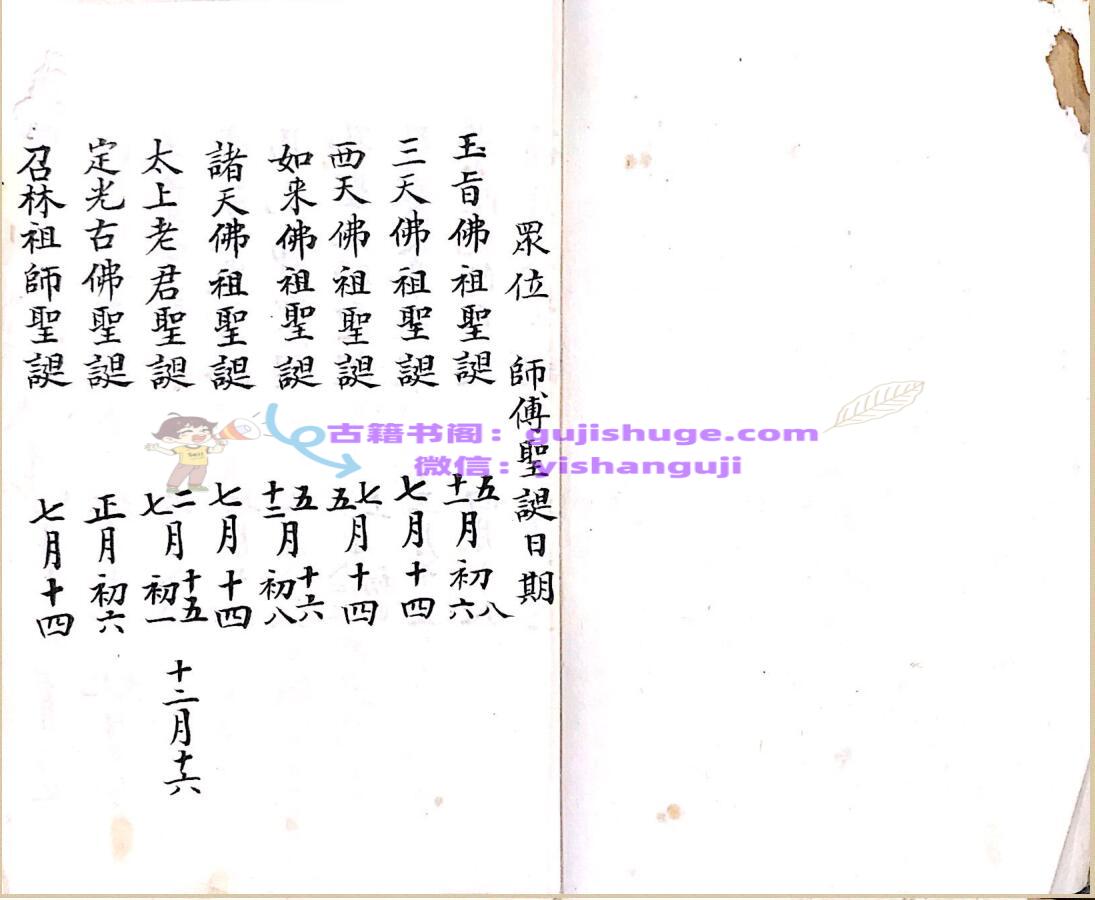 眾位 師傅聖誕日期
玉旨佛祖聖誕 五十一月初八六
三天佛祖聖誕 七月十四
西天佛祖聖誕 七五月十四
如来佛祖聖誕 五十二月十六初八
諸天佛祖聖誕 七月十四
太上老君聖誕 二七月十五初一 十二月十六
定光古佛聖誕 正月初六
召林祖師聖誕 七月十四
古籍书阁：gujishuge.com
微信：yishanguji